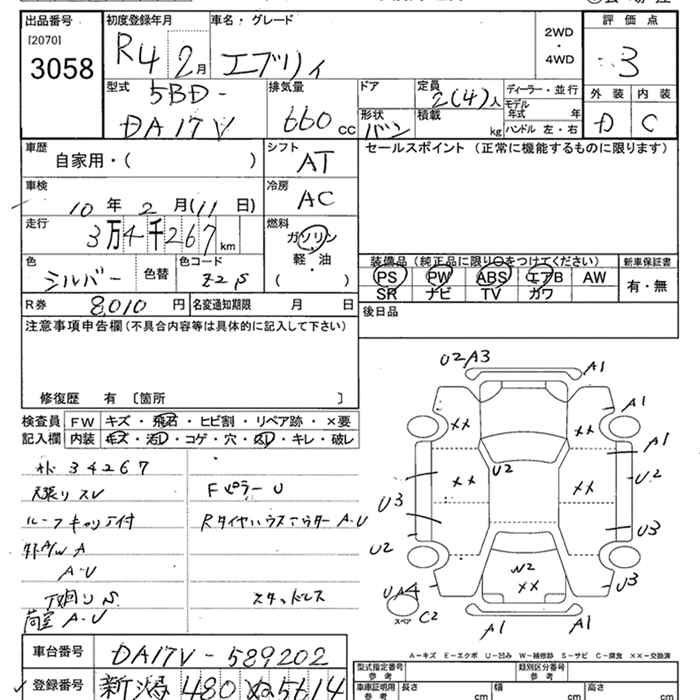 出品番号 [2070] 3058
初度登録年月 R4 2月
車名・グレード エブリィ
2WD・4WD
評価点 3
型式 5BD-DA17V
排気量 660cc
ドア
形状 バン
定員 2(4)人
積載 kg
ディーラー・並行
モデル年式 年
ハンドル 左・右
外装 D
内装 C
車歴 自家用・( )
シフト AT
セールスポイント (正常に機能するものに限ります)
車検 10年2月(11日)
冷房 AC
走行 3万4千267km
燃料 ガソリン・軽・油( )
色 シルバー
色替
色コード Z2S
装備品(純正品に限り○をつけてください)
PS PW ABS エアB AW
SR ナビ TV カワ
新車保証書 有・無
R券 8,010円
名変通知期限 月 日
後日品
注意事項申告欄(不具合内容等は具体的に記入して下さい)
修復歴 有 〔箇所 〕
検査員記入欄
FW キズ・飛石・ヒビ割・リペア跡・×要
内装 キズ・汚レ・コゲ・穴・スレ・キレ・破レ
34267
天張リスレ
ルーフキャリア付
外A/W A
A・U
下廻りS
荷室A・U
FピラーU
RタイヤハウスアウターA・U
スタッドレス
U2A3 A1
×× ×× A1
A1
U2
×× ×× U2
U3
U3
U2
W2
××
U3
UA4
スペア C2
A1 A1
A-キズ E-エクボ U-凹み W-補修跡 S-サビ C-腐食 ××-交換済
車台番号 DA17V-589202
登録番号 新潟480ぬ5614
型式指定番号 参考
類別区分番号 参考
車庫証明用 参考
長さ cm
幅 cm
高さ cm